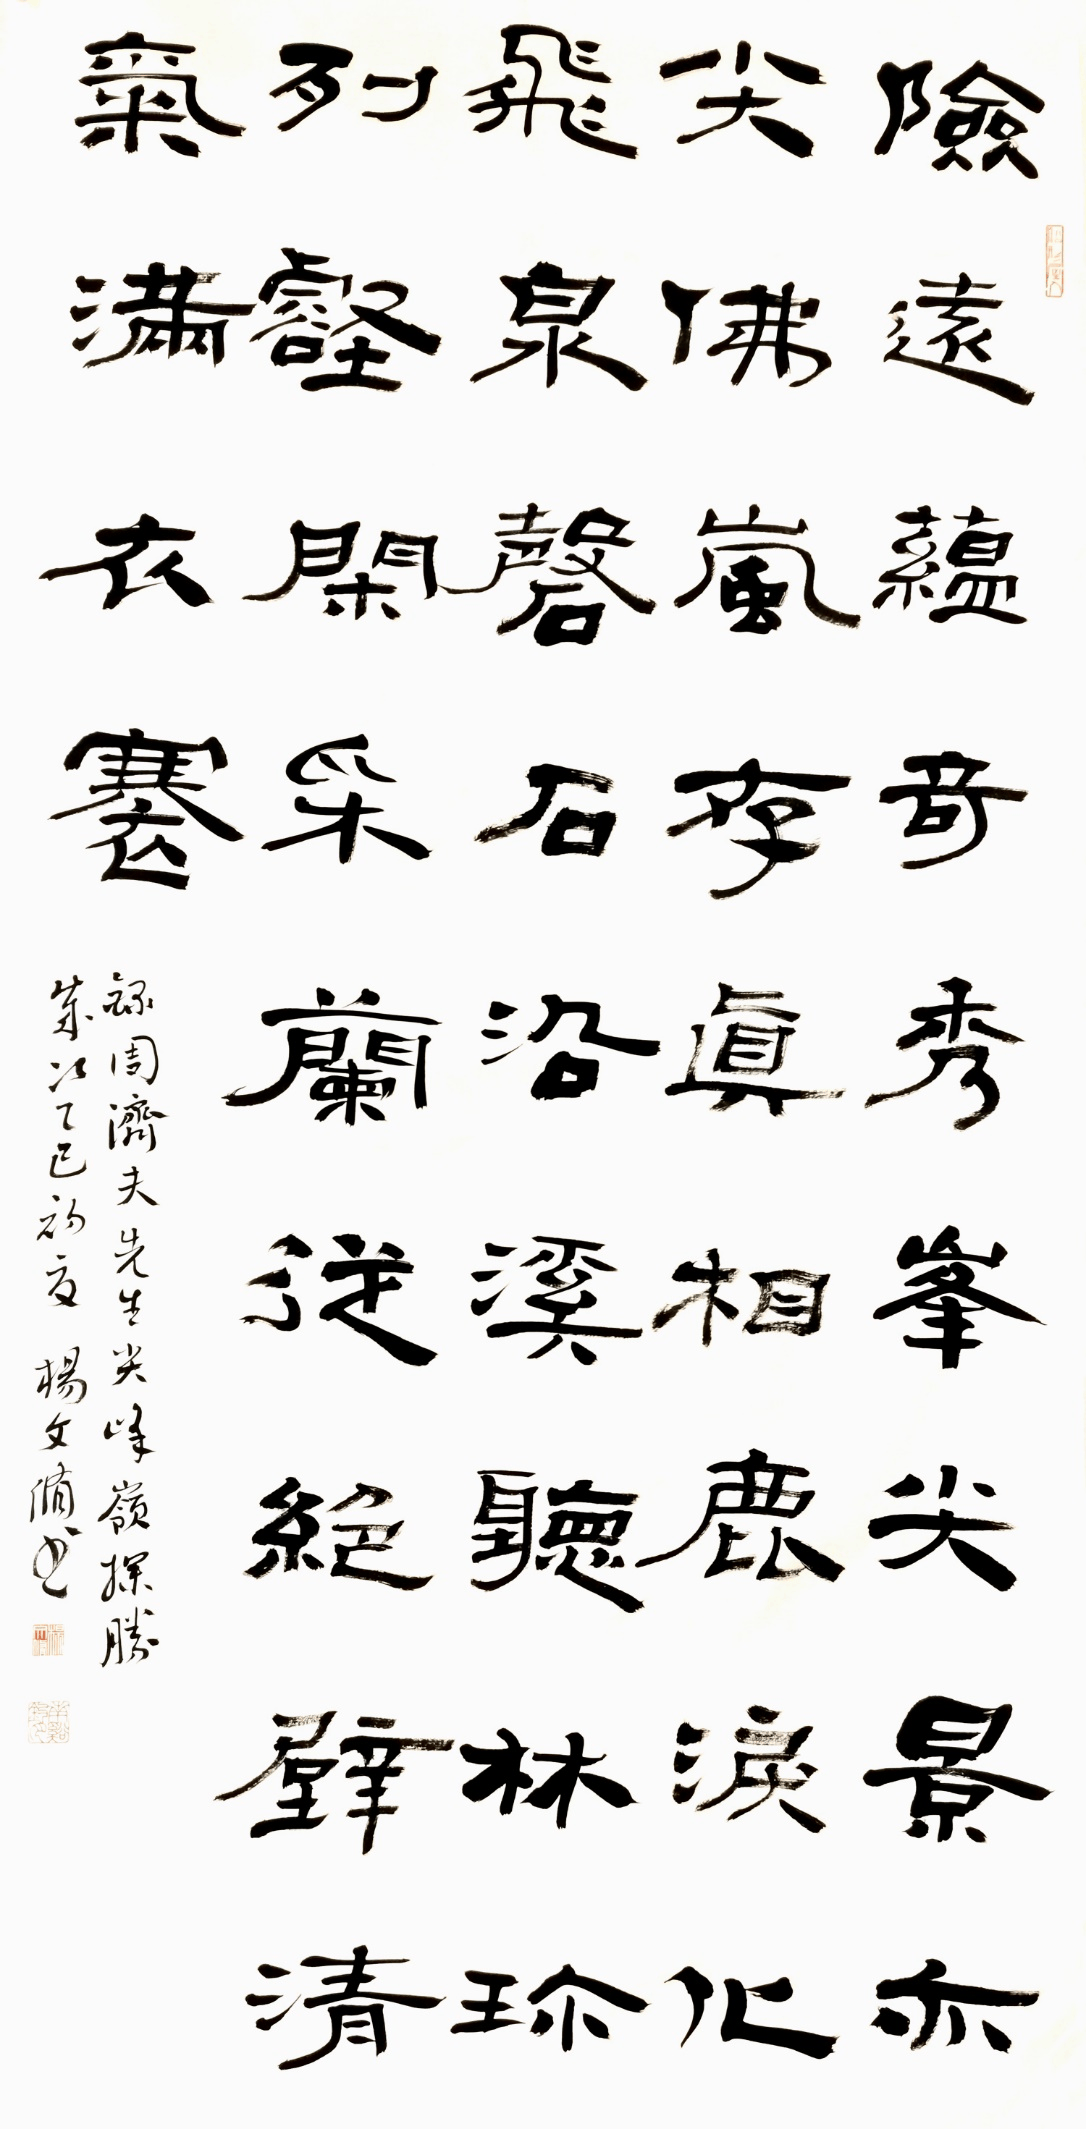 險遠蘊奇秀峯尖景亦
尖佛嵐存眞相鹿淚化
飛泉磬石沿溪聽林珎
列壑閑采蘭從絕壁清
氣滿衣褰
錄周濟夫先生尖峰嶺探勝
歲次乙巳初夏 楊文脩书